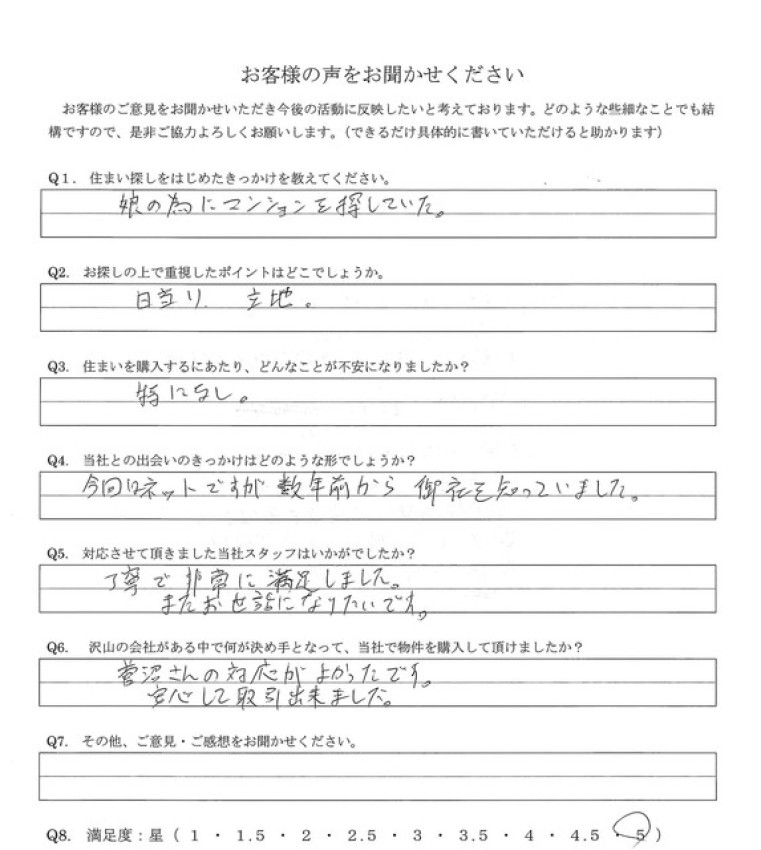 お客様の声をお聞かせください
お客様のご意見をお聞かせいただき今後の活動に反映したいと考えております。どのような些細なことでも結
構ですので、是非ご協力よろしくお願いします。（できるだけ具体的に書いていただけると助かります）
Q1. 住まい探しをはじめたきっかけを教えてください。
娘の為にマンションを探していた。
Q2. お探しの上で重視したポイントはどこでしょうか。
日当り、立地。
Q3. 住まいを購入するにあたり、どんなことが不安になりましたか？
特になし。
Q4. 当社との出会いのきっかけはどのような形でしょうか？
今回はネットですが数年前から御社を知っていました。
Q5. 対応させて頂きました当社スタッフはいかがでしたか？
丁寧で非常に満足しました。
またお世話になりたいです。
Q6. 沢山の会社がある中で何が決め手となって、当社で物件を購入して頂けましたか？
菅沼さんの対応がよかったです。
安心して取引出来ました。
Q7. その他、ご意見・ご感想をお聞かせください。
Q8. 満足度：星（ 1 ・ 1.5 ・ 2 ・ 2.5 ・ 3 ・ 3.5 ・ 4 ・ 4.5 ・ 5 ）